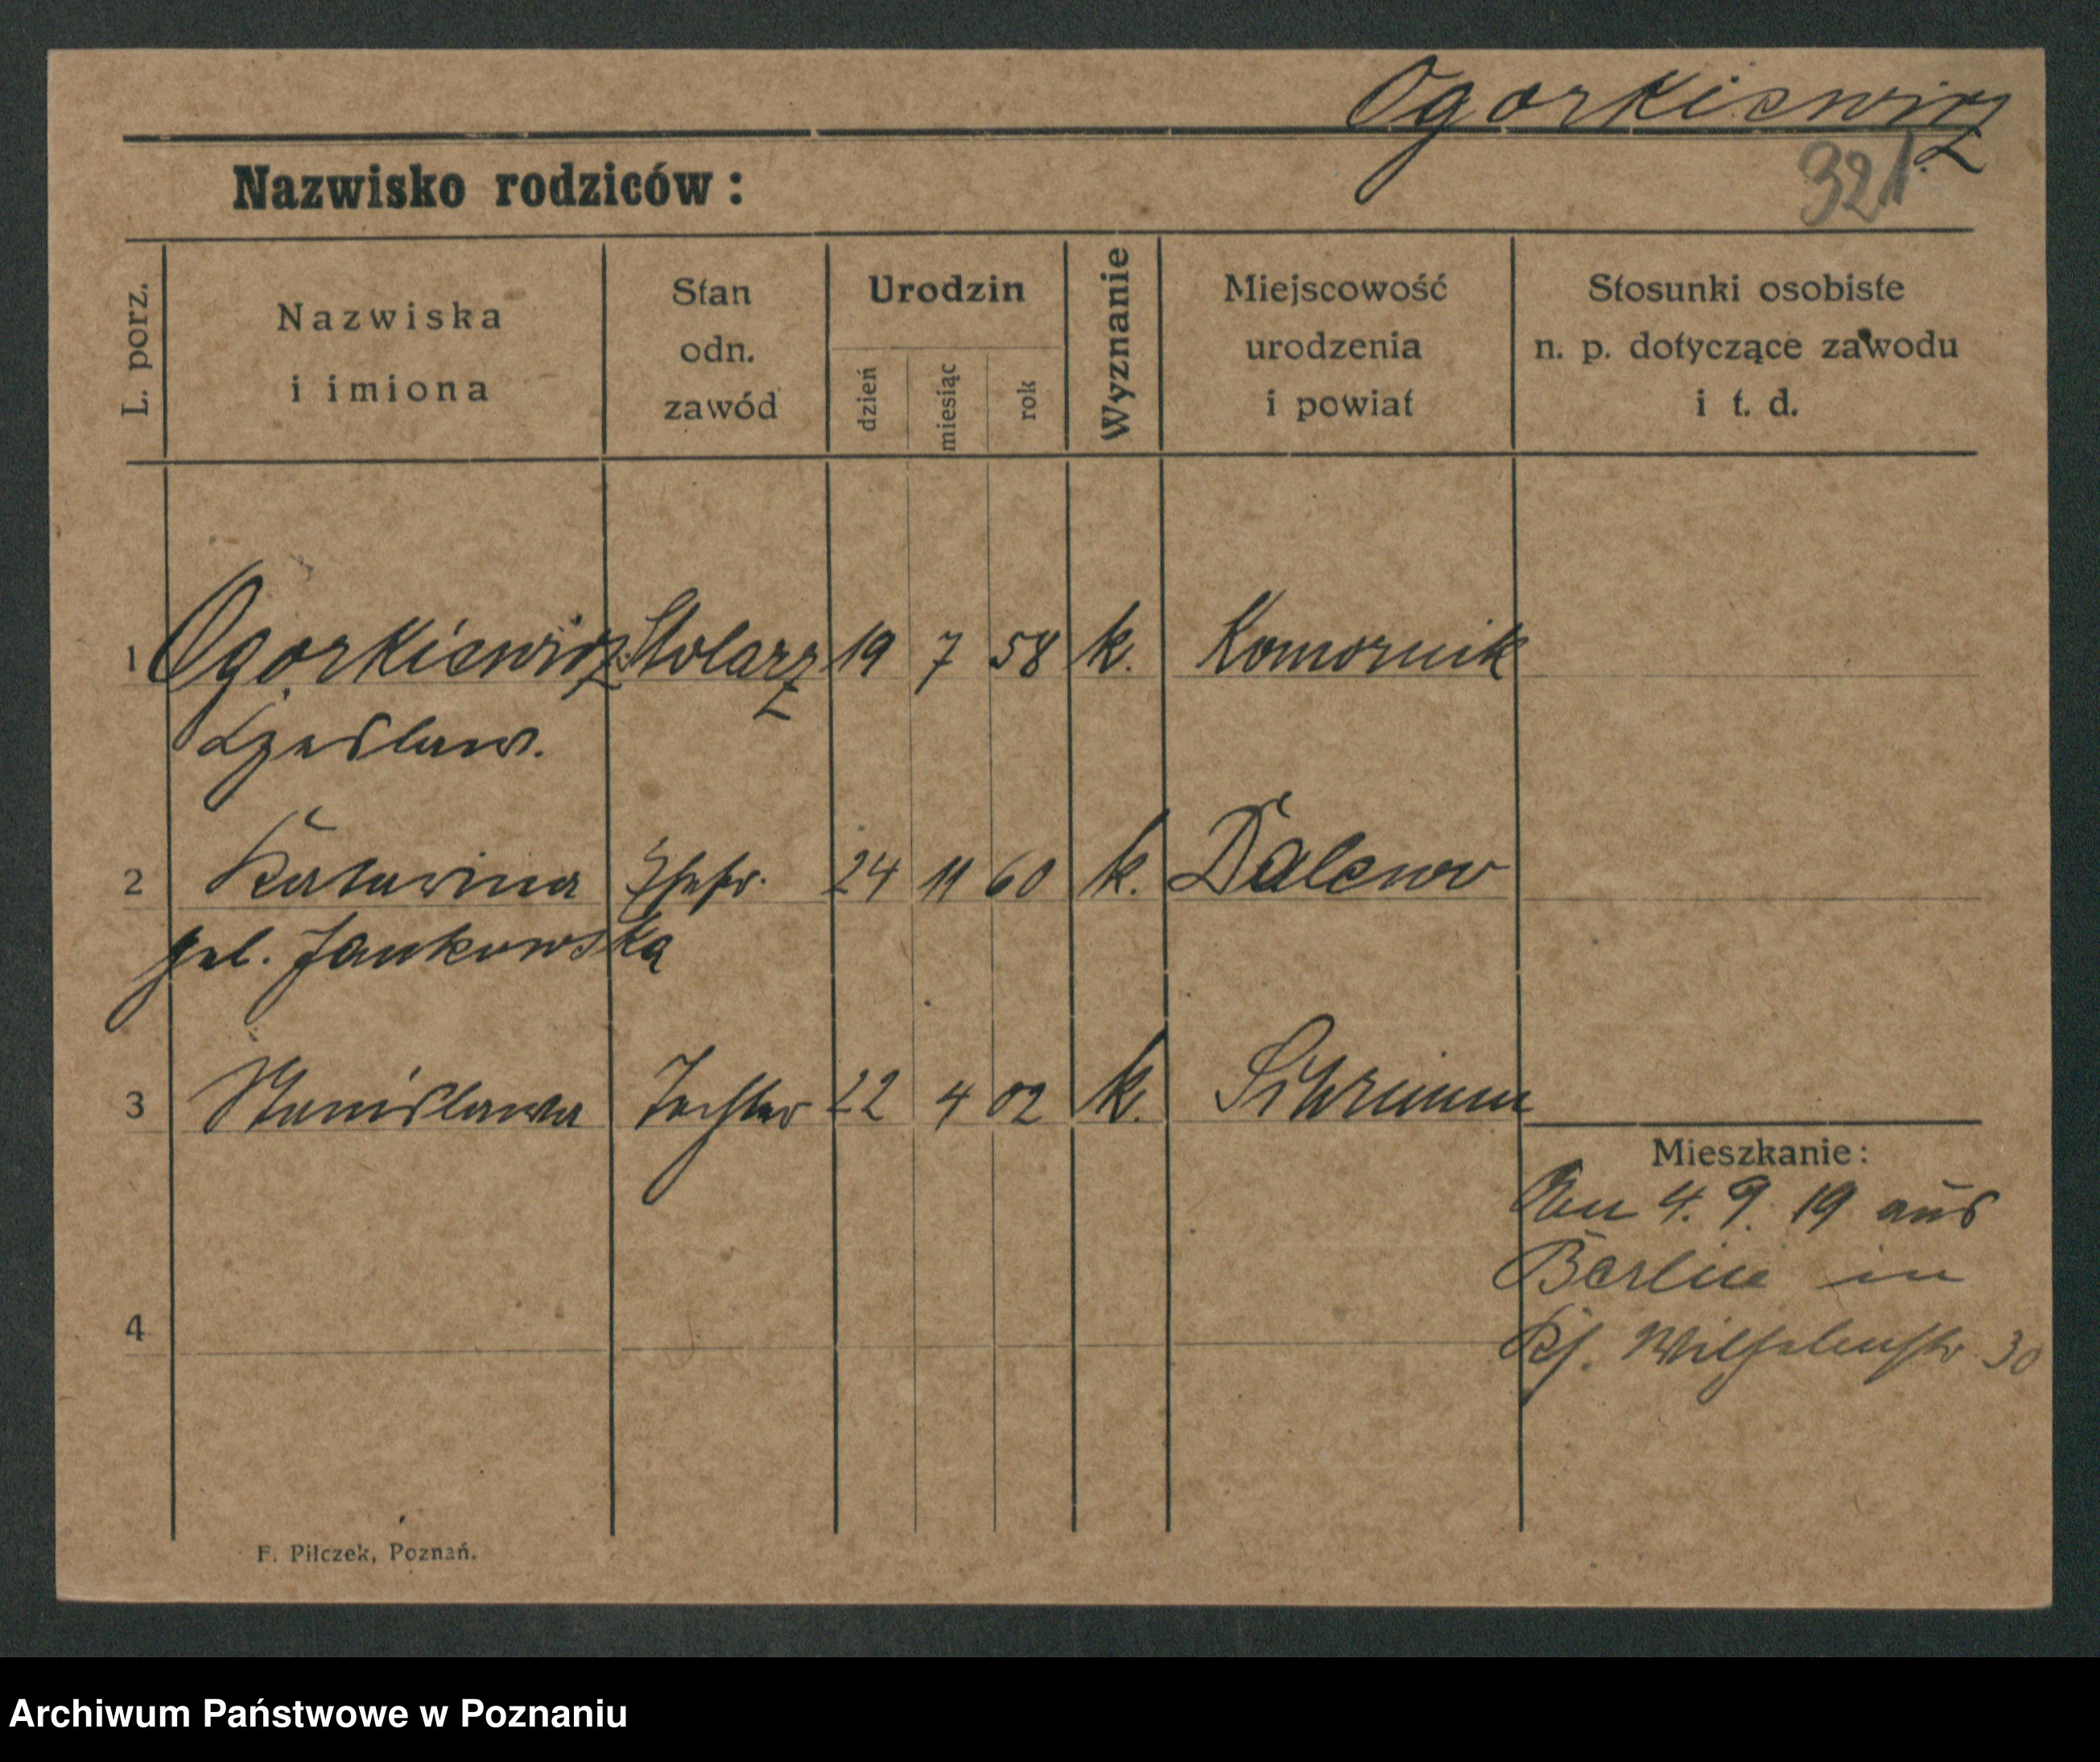 Ogorkiewicz
321
Nazwisko rodziców:
L. porz.
Nazwiska
i imiona
Stan
odn.
zawód
Urodzin
dzień
miesiąc
rok
Wyznanie
Miejscowość
urodzenia
i powiat
Stosunki osobiste
n. p. dotyczące zawodu
i t. d.
1 Ogorkiewicz Stolarz 19 7 58 k. Komornik
Czeslaw.
2 Katarina Ehefr. 24 11 60 k. Dalewo
geb. Jankowska
3 Stanislawa Tochter 22 4 02 k. Schrimm
Mieszkanie:
4. 9. 19 aus
Berlin in
Wilhelmstr 30
4
F. Pilczek, Poznań.
Archiwum Państwowe w Poznaniu